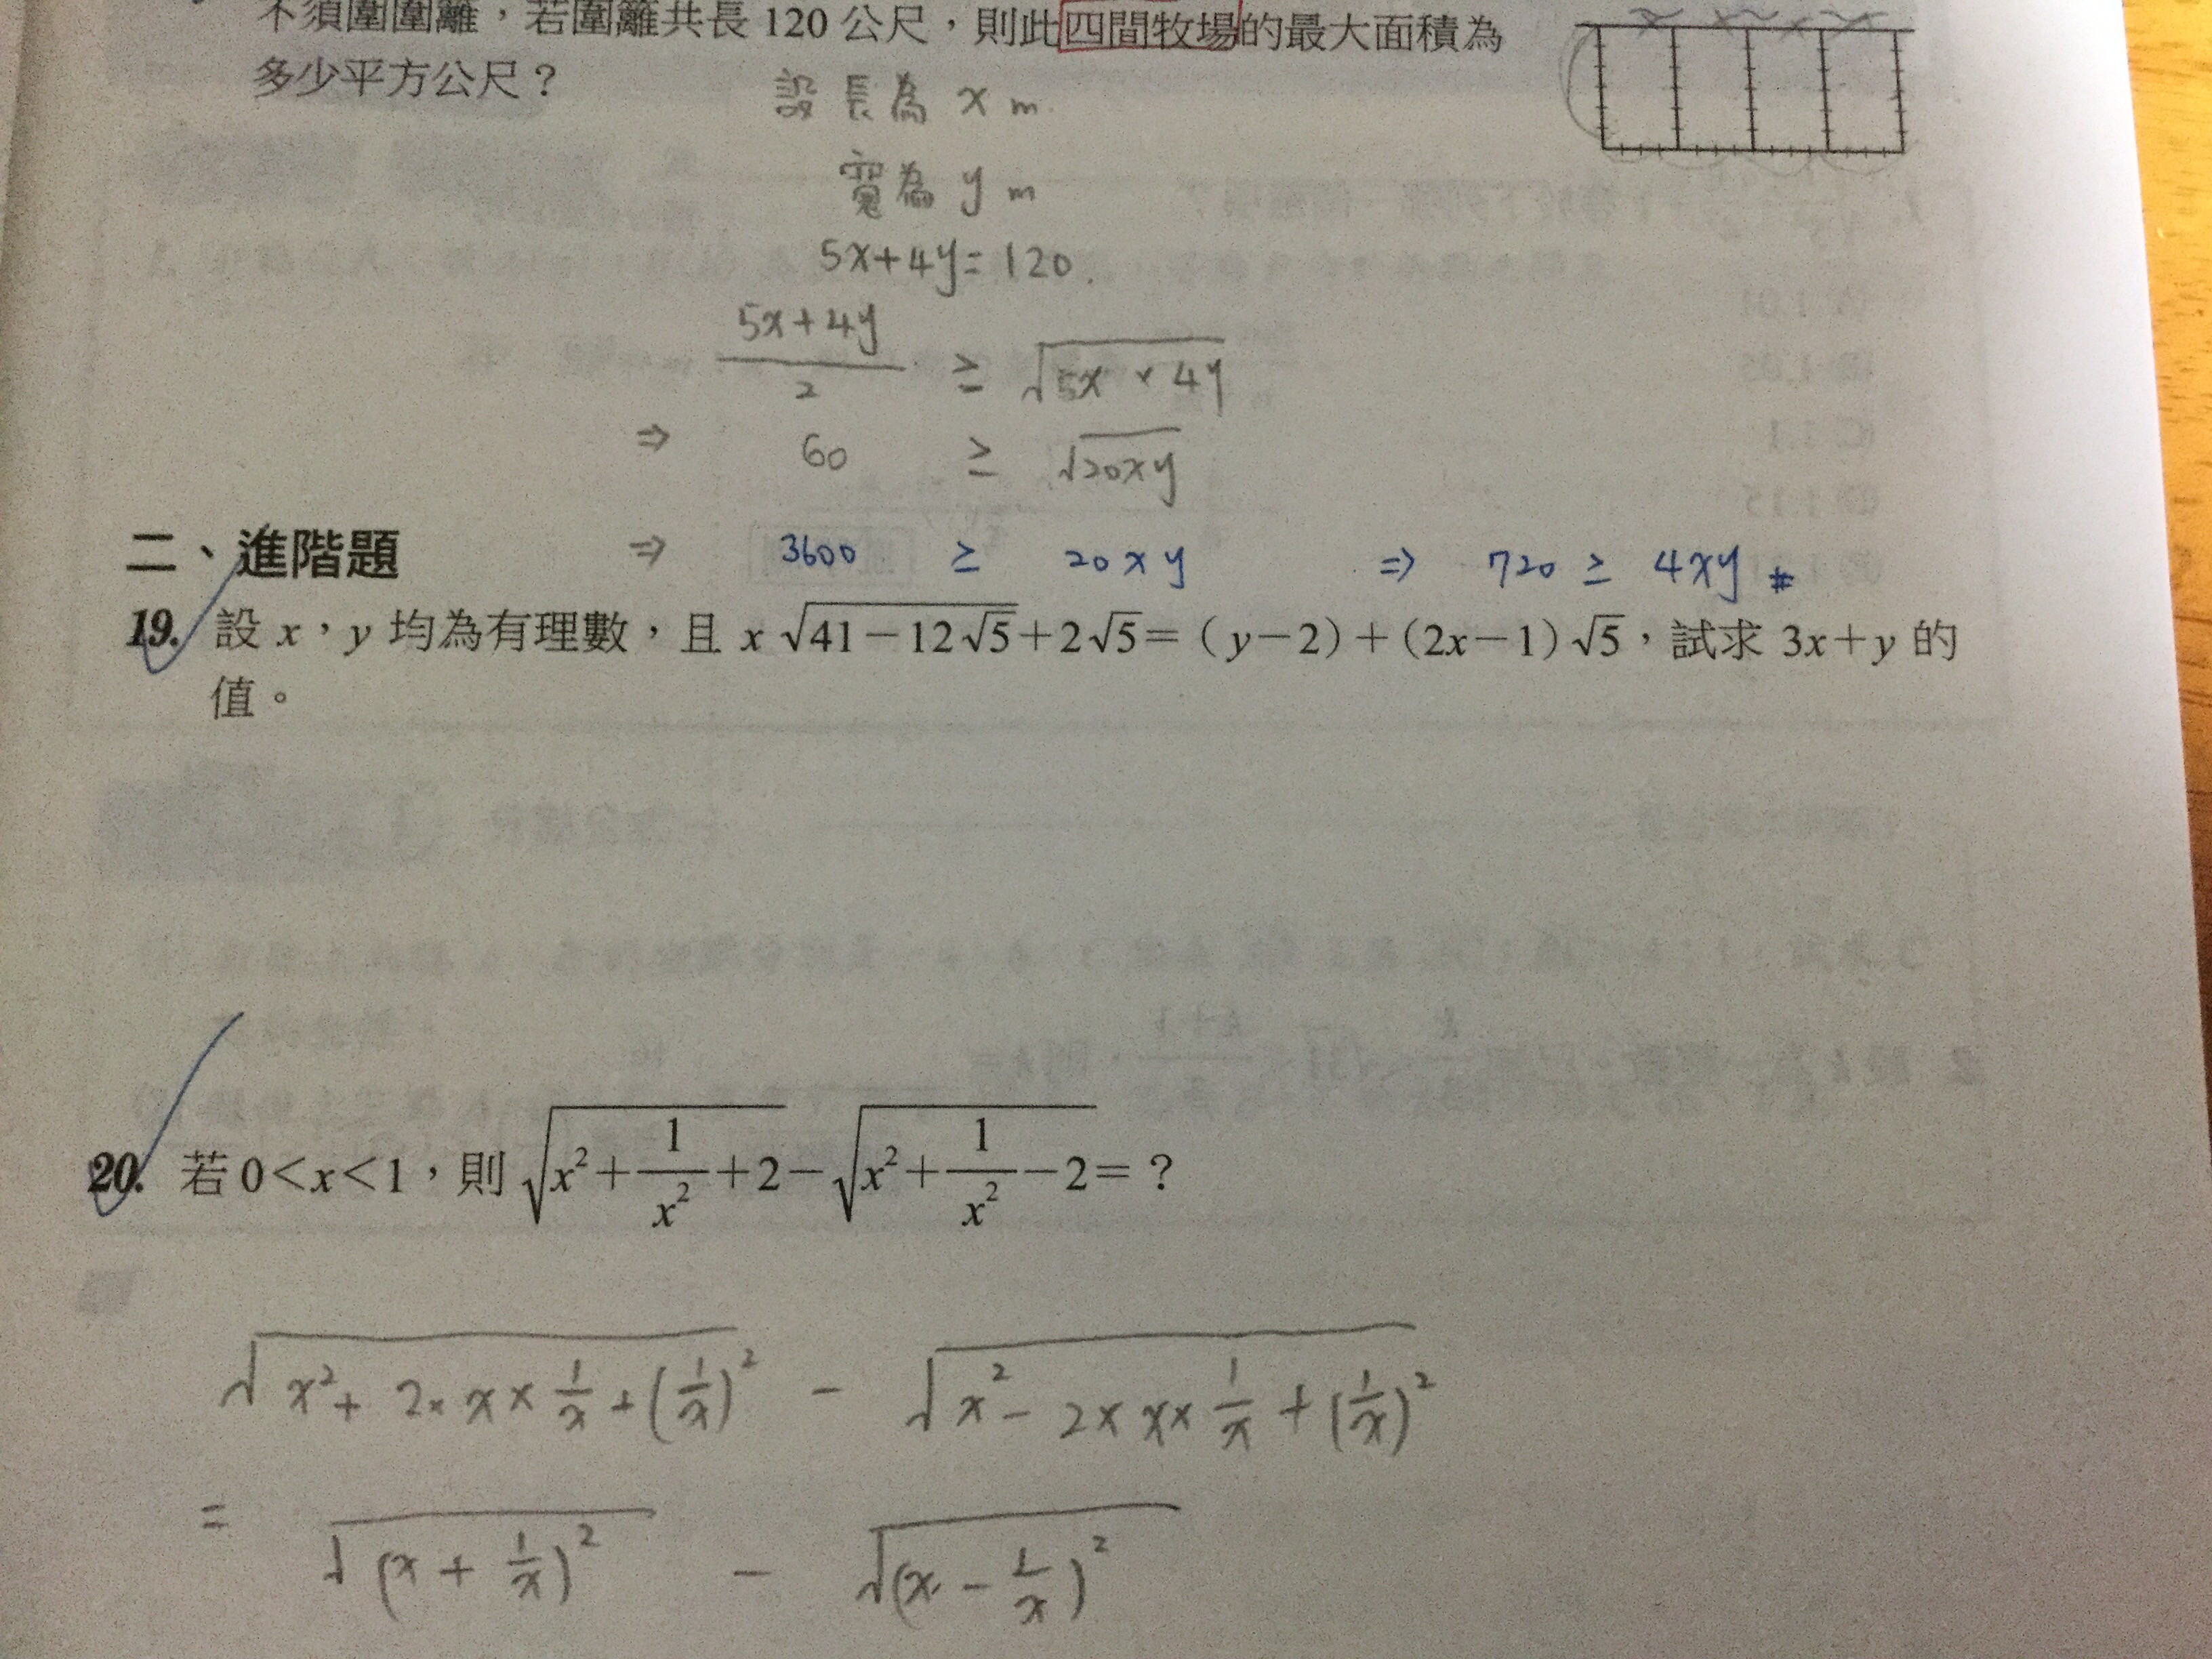 不須圍圍籬，若圍籬共長 120 公尺，則此四間牧場的最大面積為
多少平方公尺？
設 長為 x m
寬為 y m
5x+4y=120.
(5x+4y)/2 ≥ √(5x × 4y)
⇒ 60 ≥ √(20xy)
⇒ 3600 ≥ 20xy ⇒ 720 ≥ 4xy #
二、進階題
19. 設 x，y 均為有理數，且 x√(41−12√5)+2√5=（y−2）+（2x−1）√5，試求 3x+y 的
值。
20. 若 0<x<1，則 √(x²+1/x²+2)−√(x²+1/x²−2)=？
√(x²+2×x×1/x+(1/x)²) − √(x²−2×x×1/x+(1/x)²)
= √((x+1/x)²) − √((x−1/x)²)